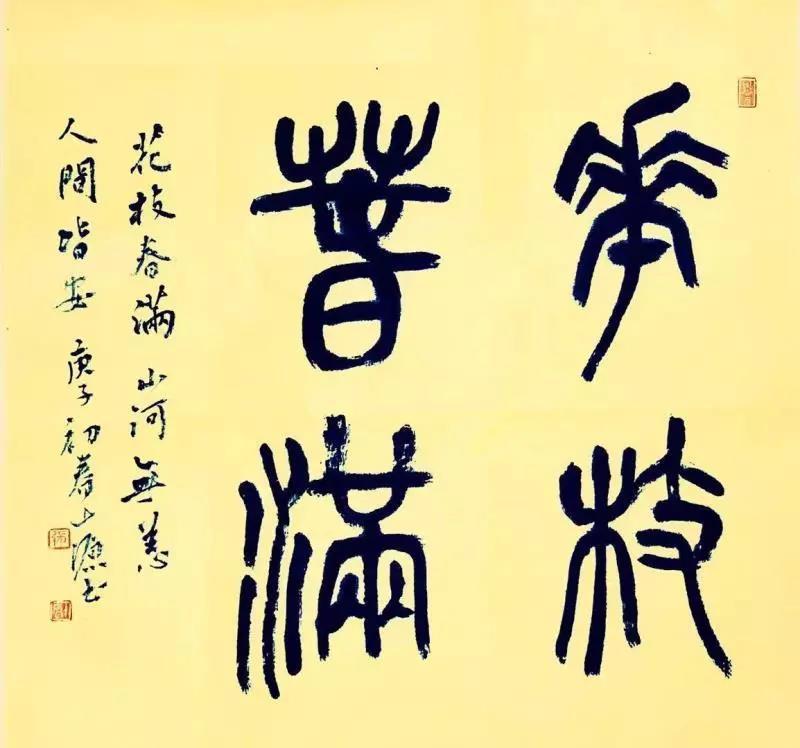 花枝
春满
花枝春满 山河無恙
人間皆安 庚子初春 山源书